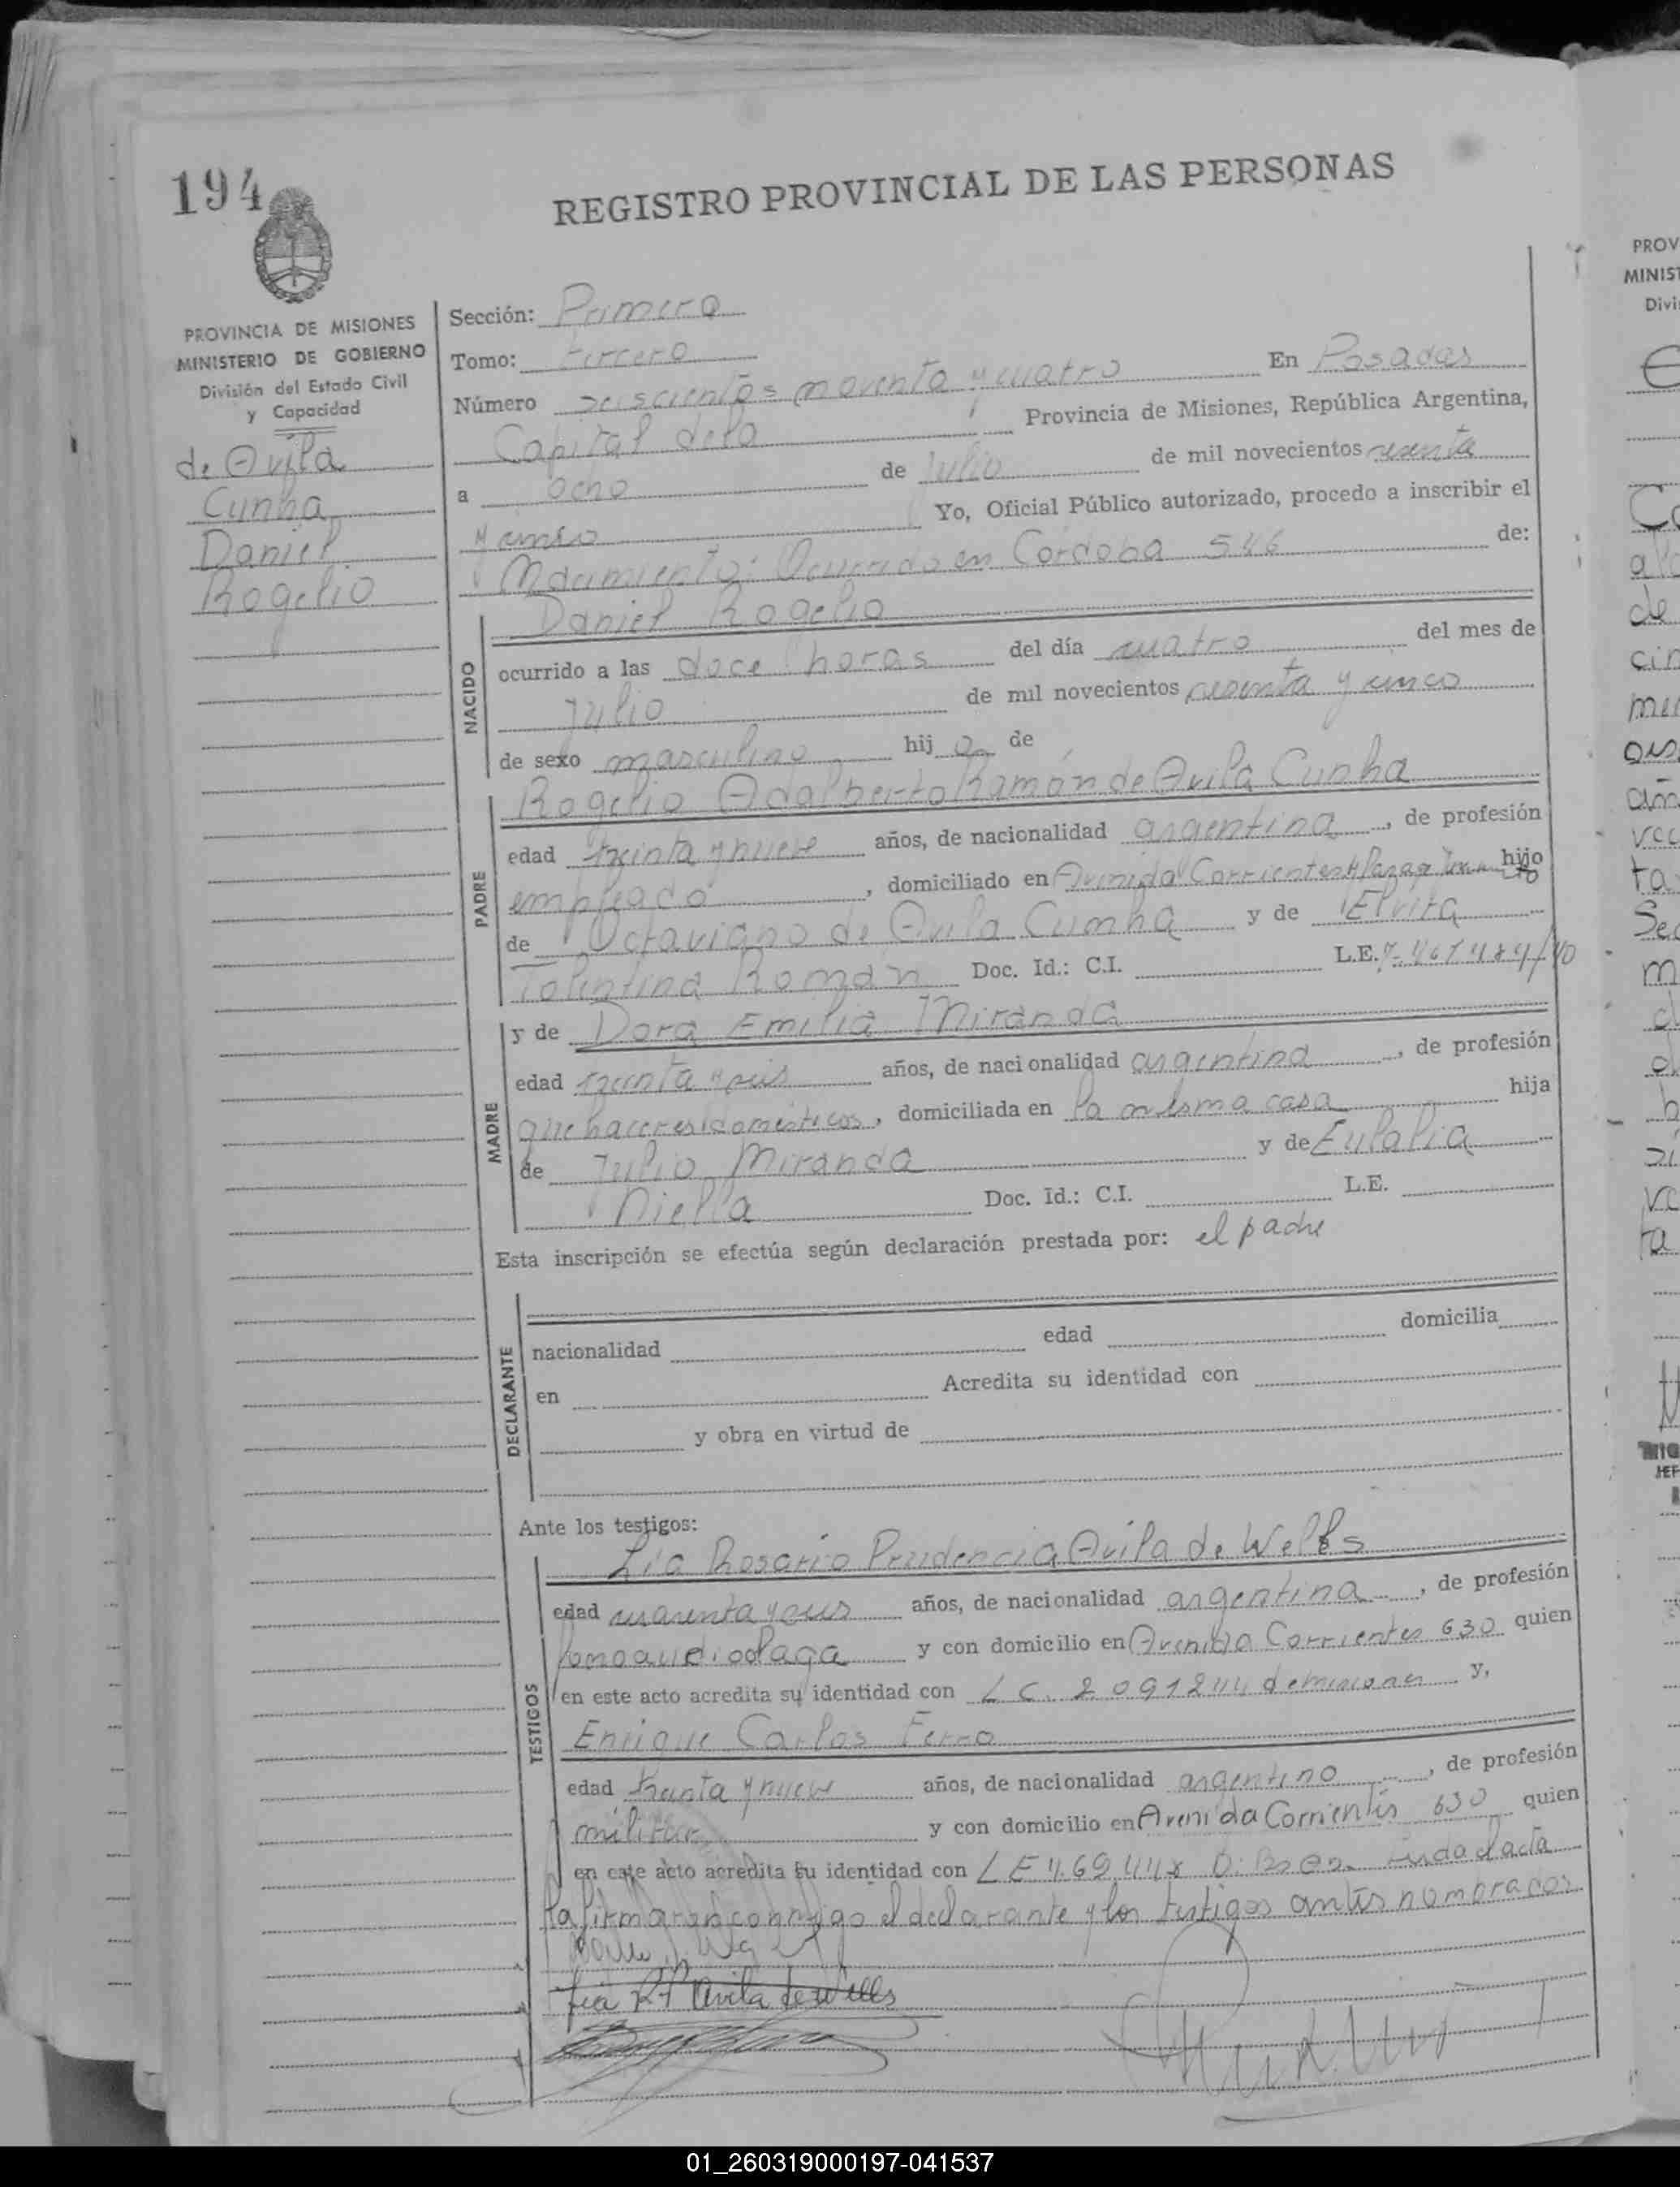 194
REGISTRO PROVINCIAL DE LAS PERSONAS
PROVINCIA DE MISIONES
MINISTERIO DE GOBIERNO
División del Estado Civil
y Capacidad
de Avila
Cunha
Daniel
Rogelio
Sección: Primera
Tomo: tercero
Número seiscientos noventa y cuatro En Posadas
Capital de la Provincia de Misiones, República Argentina,
a ocho de Julio de mil novecientos sesenta
y cinco Yo, Oficial Público autorizado, procedo a inscribir el
Nacimiento: Ocurrido en Córdoba 546 de:
NACIDO
Daniel Rogelio
ocurrido a las doce horas del día cuatro del mes de
Julio de mil novecientos sesenta y cinco
de sexo masculino hij o de
PADRE
Rogelio Adalberto Ramón de Avila Cunha
edad treinta y nueve años, de nacionalidad argentina, de profesión
empleado, domiciliado en Avenida Corrientes hijo
de Octaviano de Avila Cunha y de Elvira
Tolentina Román Doc. Id.: C.I. L.E.
MADRE
y de Dora Emilia Miranda
edad treinta y seis años, de nacionalidad argentina, de profesión
quehaceres domésticos, domiciliada en la misma casa hija
de Julio Miranda y de Eulalia
Niella Doc. Id.: C.I. L.E.
Esta inscripción se efectúa según declaración prestada por: el padre
DECLARANTE
nacionalidad edad domicilia
en Acredita su identidad con
y obra en virtud de
Ante los testigos:
TESTIGOS
Lia Rosario Prudencia Avila de Wells
edad cuarenta y seis años, de nacionalidad argentina, de profesión
fonoaudiologa y con domicilio en Avenida Corrientes 630 quien
en este acto acredita su identidad con L C. 2091244 de misiones y,
Enrique Carlos Ferro
edad treinta y nueve años, de nacionalidad argentino, de profesión
militar y con domicilio en Avenida Corrientes 630 quien
en este acto acredita su identidad con L E leida el acta
la firmaron conmigo el declarante y los testigos antes nombrados
Lia R P Avila de Wells
PROV
MINIST
Divi
01_260319000197-041537